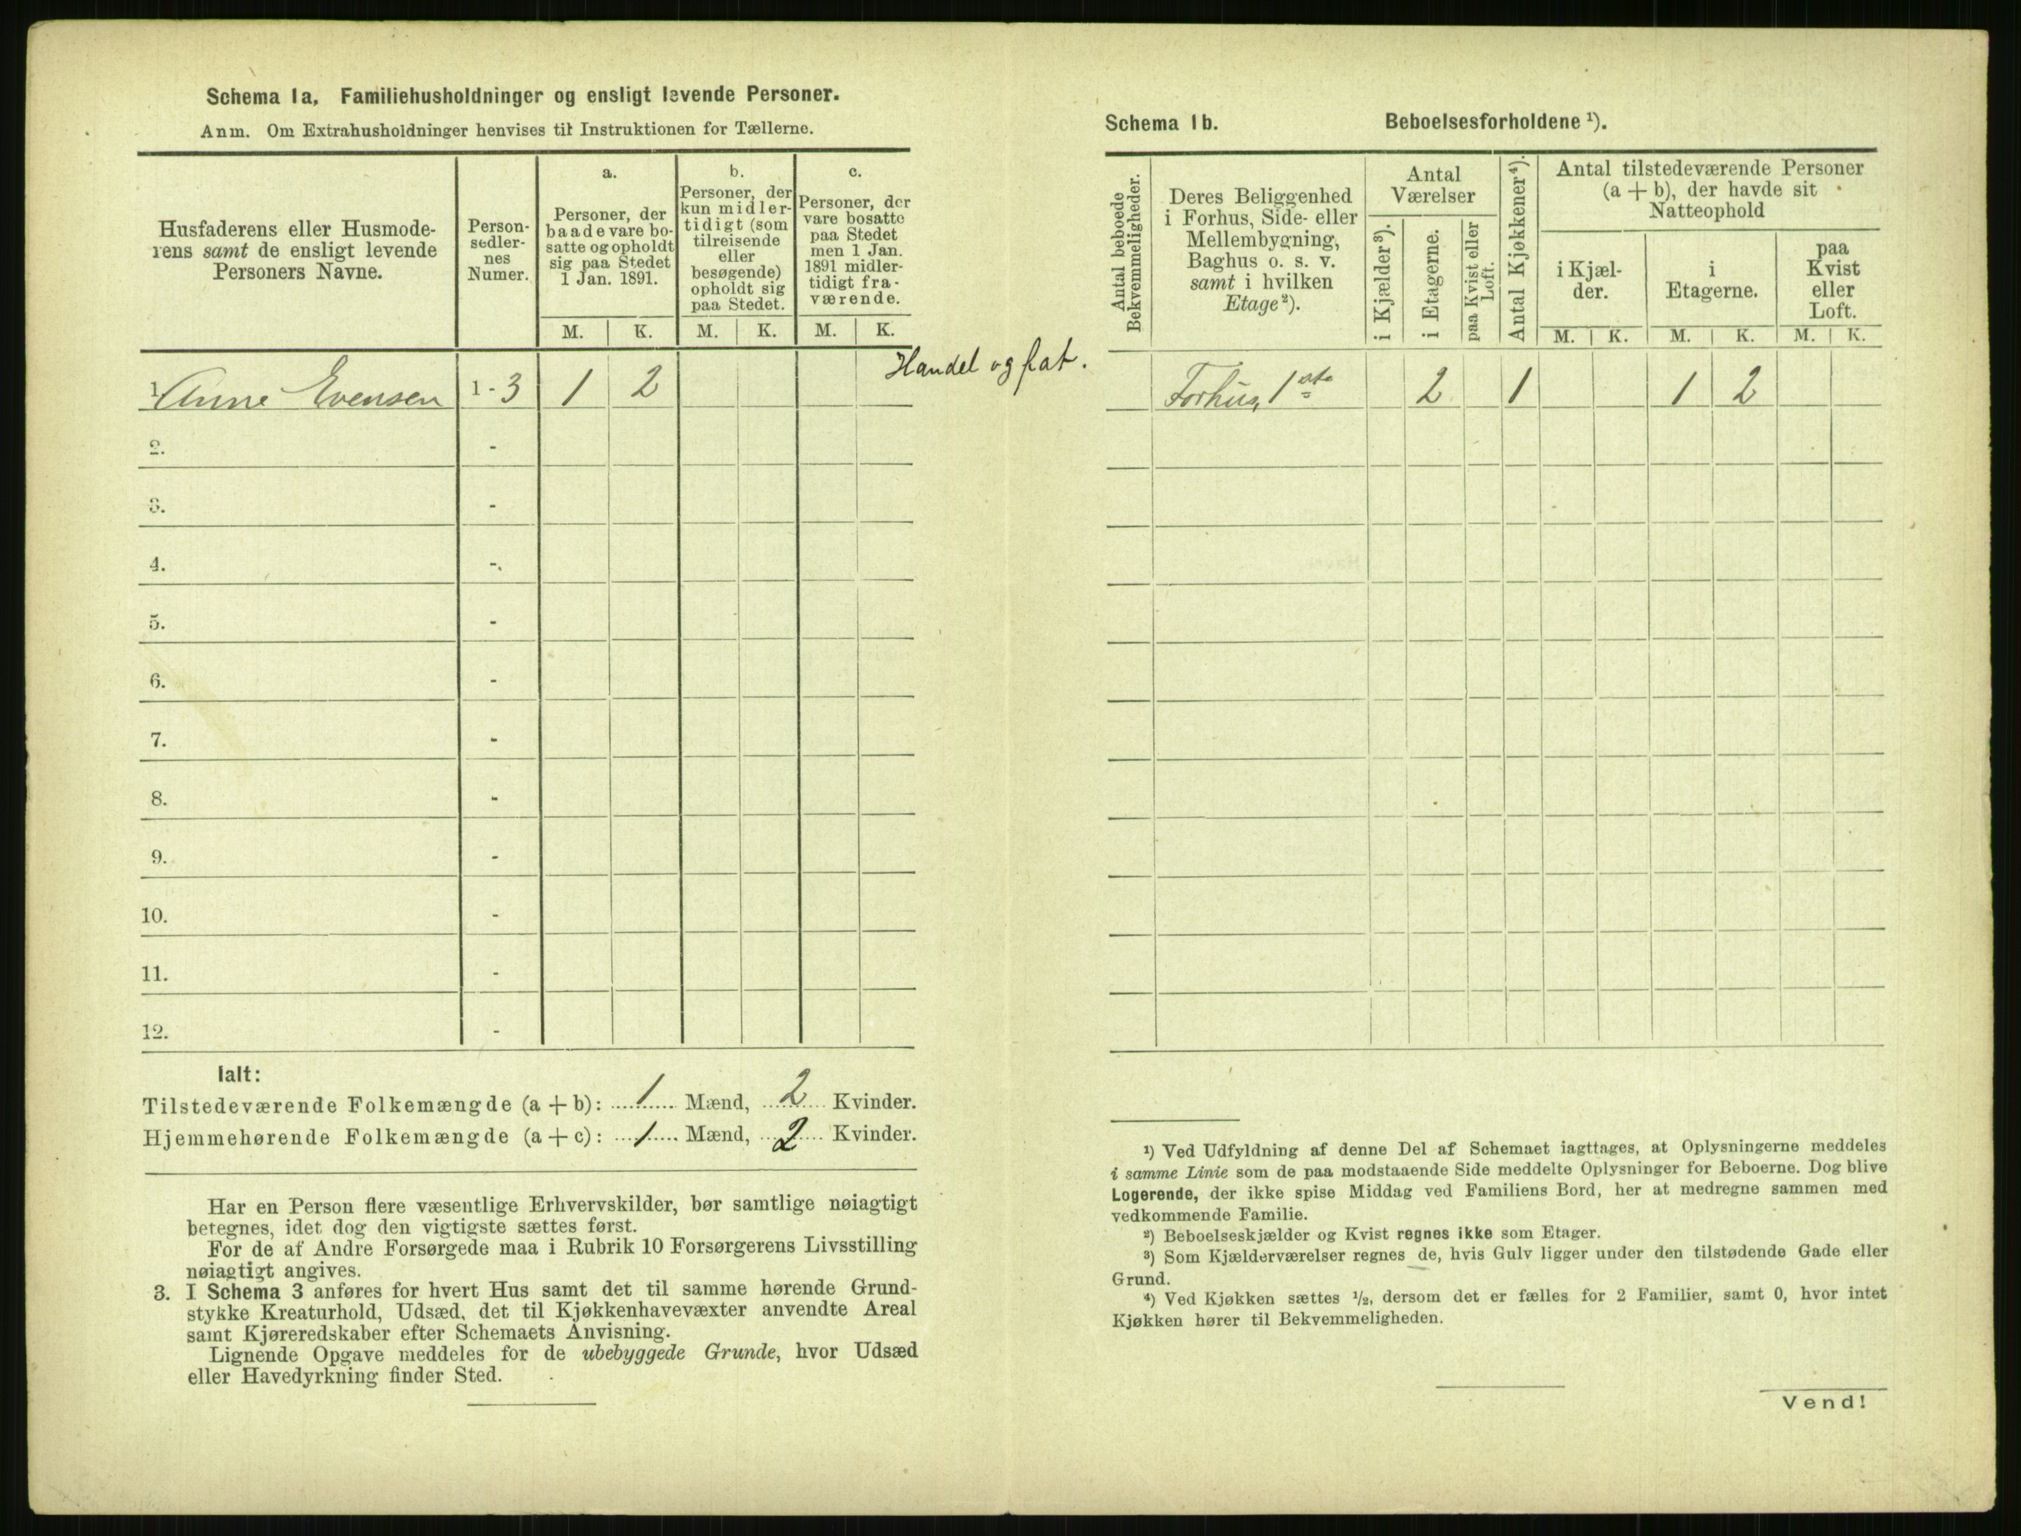 Schema 1a. Familiehusholdninger og ensligt levende Personer.
Anm. Om Extrahusholdninger henvises til Instruktionen for Tællerne.
Husfaderens eller Husmode-
rens samt de ensligt levende
Personers Navne.
Person-
sedler-
nes
Numer.
a.
Personer, der
baade vare bo-
satte og opholdt
sig paa Stedet
1 Jan. 1891.
b.
Personer, der
kun midler-
tidigt (som
tilreisende
eller
besøgende)
opholdt sig
paa Stedet.
c.
Personer, der
vare bosatte
paa Stedet
men 1 Jan.
1891 midler-
tidigt fra-
værende.
M. K. M. K. M. K.
1. Anne Evensen 1 - 3 1 2
Handel og flat.
2. -
3. -
4. -
5. -
6. -
7. -
8. -
9. -
10. -
11. -
12. -
Ialt:
Tilstedeværende Folkemængde (a + b): 1 Mænd, 2 Kvinder.
Hjemmehørende Folkemængde (a + c): 1 Mænd, 2 Kvinder.
Har en Person flere væsentlige Erhvervskilder, bør samtlige nøiagtigt
betegnes, idet dog den vigtigste sættes først.
For de af Andre Forsørgede maa i Rubrik 10 Forsørgerens Livsstilling
nøiagtigt angives.
3. I Schema 3 anføres for hvert Hus samt det til samme hørende Grund-
stykke Kreaturhold, Udsæd, det til Kjøkkenhavevæxter anvendte Areal
samt Kjøreredskaber efter Schemaets Anvisning.
Lignende Opgave meddeles for de ubebyggede Grunde, hvor Udsæd
eller Havedyrkning finder Sted.
Schema 1b. Beboelsesforholdene ¹).
Antal beboede
Bekvemmeligheder.
Deres Beliggenhed
i Forhus, Side- eller
Mellembygning,
Baghus o. s. v.
samt i hvilken
Etage ²).
Antal
Værelser
i Kjælder ³).
i Etagerne.
paa Kvist eller
Loft.
Antal Kjøkkener ⁴).
Antal tilstedeværende Personer
(a + b), der havde sit
Natteophold
i Kjæl-
der.
i
Etagerne.
paa
Kvist
eller
Loft.
M. K. M. K. M. K.
Forhus, 1ste 2 1 1 2
¹) Ved Udfyldning af denne Del af Schemaet iagttages, at Oplysningerne meddeles
i samme Linie som de paa modstaaende Side meddelte Oplysninger for Beboerne. Dog blive
Logerende, der ikke spise Middag ved Familiens Bord, her at medregne sammen med
vedkommende Familie.
²) Beboelseskjælder og Kvist regnes ikke som Etager.
³) Som Kjælderværelser regnes de, hvis Gulv ligger under den tilstødende Gade eller
Grund.
⁴) Ved Kjøkken sættes ½, dersom det er fælles for 2 Familier, samt 0, hvor intet
Kjøkken hører til Bekvemmeligheden.
Vend!